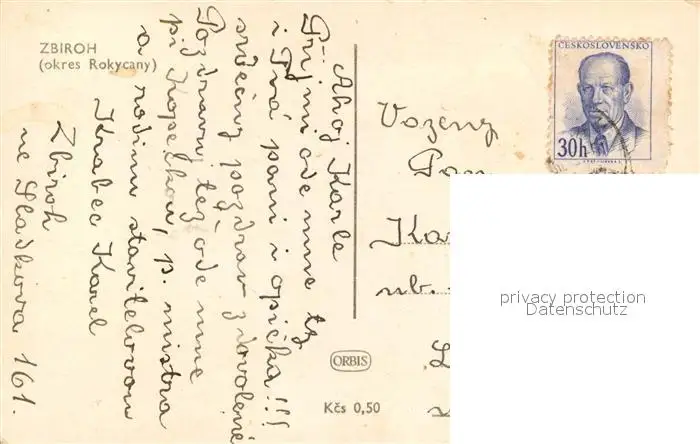 ZBIROH
(okres Rokycany)
Ahoj Karle
Přijmi ode mne též
i Tvá paní i opička!!!
srdečný pozdrav z dovolené
Pozdravuj též ode mne
pí Kopeckou, p. mistra
a rodinu stavitelovou
Krabec Karel
Zbiroh
ul Sládkova 161.
ČESKOSLOVENSKO
30h
Vozený
Pan
Ka
ub.
ORBIS
Kčs 0,50
privacy protection
Datenschutz